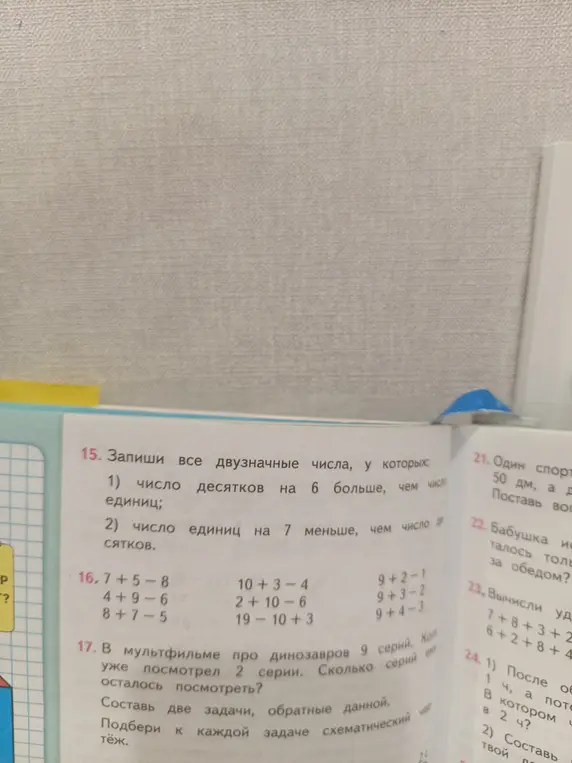 15. Запиши все двузначные числа, у которых:
1) число десятков на 6 больше, чем число
единиц;
2) число единиц на 7 меньше, чем число
сятков.
16. 7 + 5 − 8 10 + 3 − 4 9 + 2 − 1
4 + 9 − 6 2 + 10 − 6 9 + 3 − 2
8 + 7 − 5 19 − 10 + 3 9 + 4 − 3
17. В мультфильме про динозавров 9 серий.
уже посмотрел 2 серии. Сколько серий
осталось посмотреть?
Составь две задачи, обратные данной.
Подбери к каждой задаче схематический
тёж.
Р
?
21. Один спорт
50 дм, а д
Поставь во
22. Бабушка
талось тол
за обедом?
23. Вычисли уд
7 + 8 + 3 + 2
6 + 2 + 8 + 4
24. 1) После об
1 ч, а пот
В котором ч
в 2 ч?
2) Составь
твой